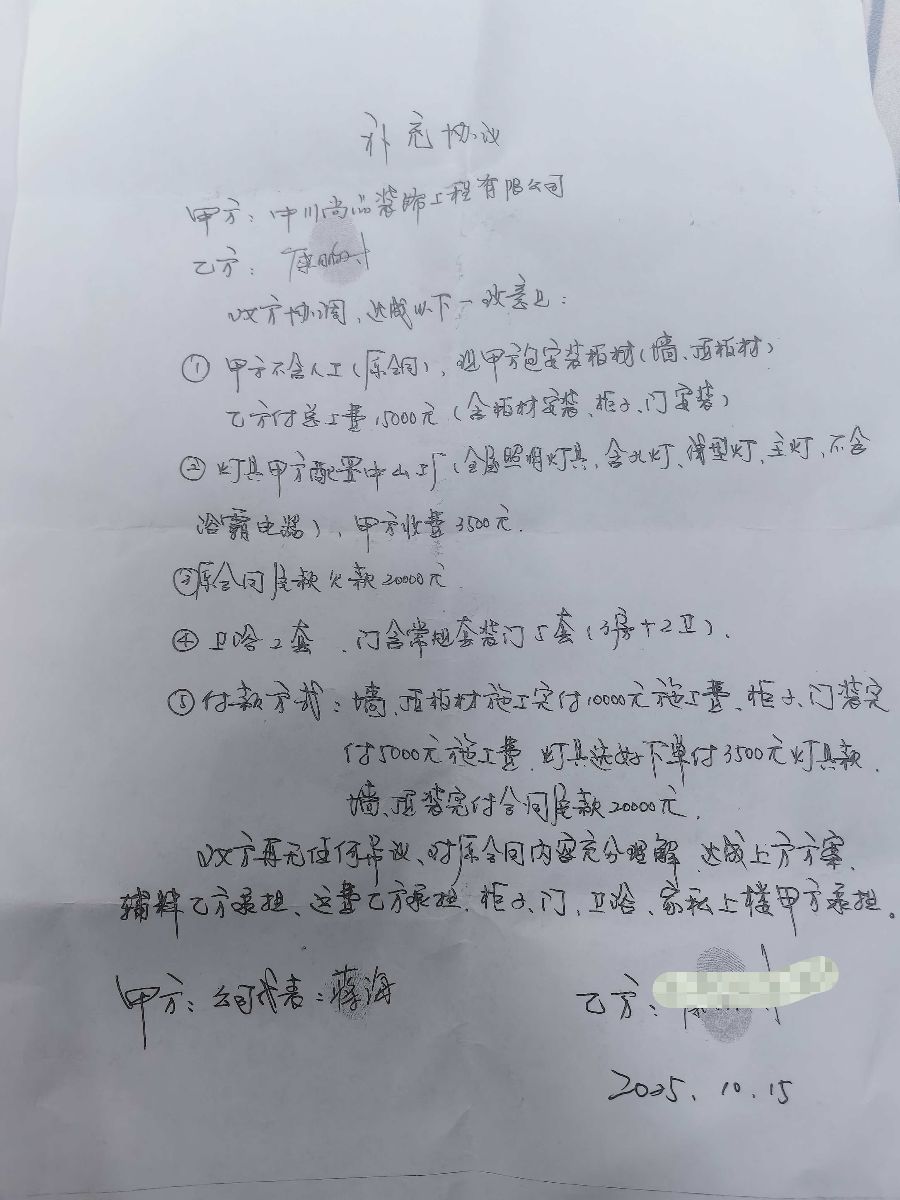 补充协议
甲方：中川尚品装饰工程有限公司
乙方：
双方协调，达成以下一致意见：
① 甲方不含人工（原合同），现甲方包安装板材（墙、顶板材）
乙方付总工费15000元（含板材安装、柜子、门安装）
② 灯具甲方配置中山工厂（全屋照明灯具，含孔灯、造型灯、主灯，不含
浴霸电器），甲方收费3500元.
③原合同尾款欠款20000元.
④ 卫浴2套、门含常规套装门5套（3房+2卫）.
⑤付款方式：墙、顶板材施工完付10000元施工费、柜子、门装完
付5000元施工费.灯具选好下单付3500元灯具款.
墙、顶装完付合同尾款20000元.
双方再无任何异议、对原合同内容充分理解.达成上方方案.
辅料乙方承担、运费乙方承担.柜子、门、卫浴、家私上楼甲方承担。
甲方：公司代表：蒋海
乙方：
2025.10.15